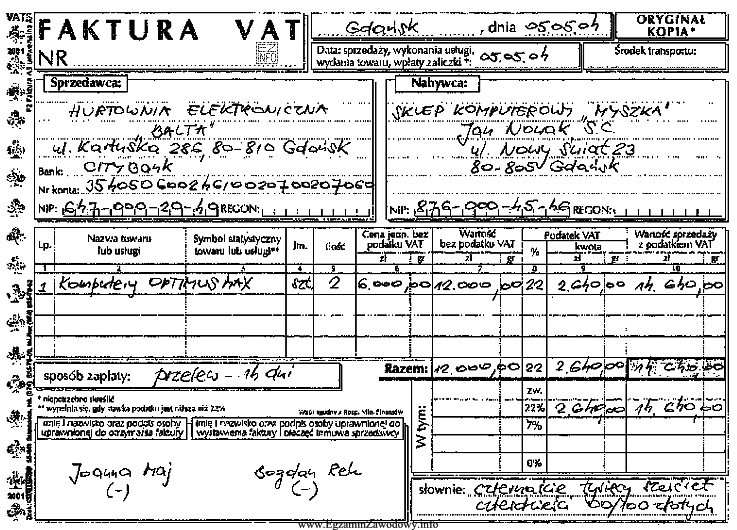 FAKTURA VAT
NR
Gdańsk, dnia 05.05.04
ORYGINAŁ
KOPIA*
Data: sprzedaży, wykonania usługi,
wydania towaru, wpłaty zaliczki * 05.05.04
Środek transportu:
Sprzedawca:
HURTOWNIA ELEKTRONICZNA
"BALTA"
ul. Kartuska 286, 80-810 Gdańsk
Bank: CITY Bank
Nr konta:
NIP: 647-000-29-49 REGON:
Nabywca:
SKLEP KOMPUTEROWY "MYSZKA"
Jan Nowak S.C.
ul. Nowy Świat 23
80-805 Gdańsk
NIP: 876-000-45-46 REGON:
Lp. Nazwa towaru lub usługi Symbol statystyczny towaru lub usługi** Jm. Ilość Cena jedn. bez podatku VAT Wartość bez podatku VAT Podatek VAT Wartość sprzedaży z podatkiem VAT
zł gr zł gr % kwota zł gr zł gr
1 2 3 4 5 6 7 8 9 10
1 Komputery OPTIMUS MAX szt. 2 6.000,00 12.000,00 22 2.640,00 14.640,00
Razem: 12.000,00 22 2.640,00 14.640,00
sposób zapłaty: przelew - 14 dni
* niepotrzebne skreślić
** wypełnia się, gdy stawka podatku jest niższa niż 22%
Wzór zgodny z Rozp. Min. Finansów
W tym:
zw.
22% 2.640,00 14.640,00
7%
0%
imię i nazwisko oraz podpis osoby uprawnionej do otrzymania faktury
imię i nazwisko oraz podpis osoby uprawnionej do wystawienia faktury i pieczęć firmowa sprzedawcy
Joanna Maj
(-)
Bogdan Rek
(-)
słownie: czternaście tysięcy sześćset
czterdzieści 00/100 złotych
www.EgzaminZawodowy.info